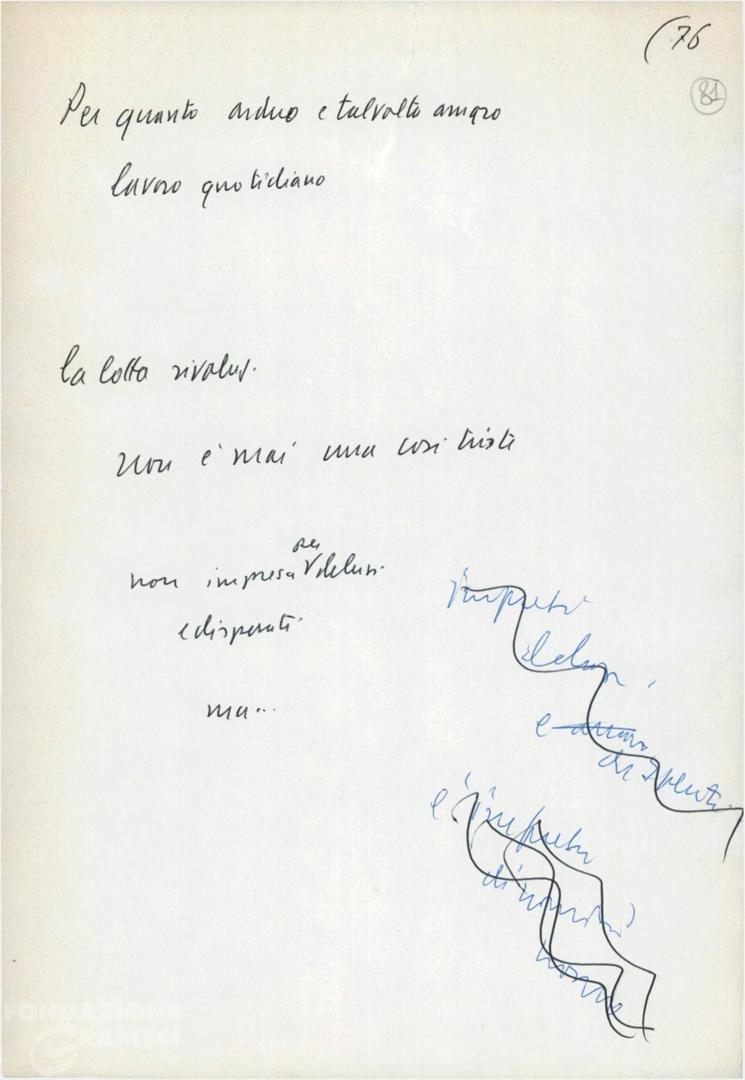 (76
81
Per quanto arduo e talvolta amaro
lavoro quotidiano
la lotta rivoluz.
non è mai una cosa triste
per
non impresa delusi
e disperati
ma...
impresa
delusi
e amari
disperati
è impresa
di uomini
FONDAZIONE
GRAMSCI